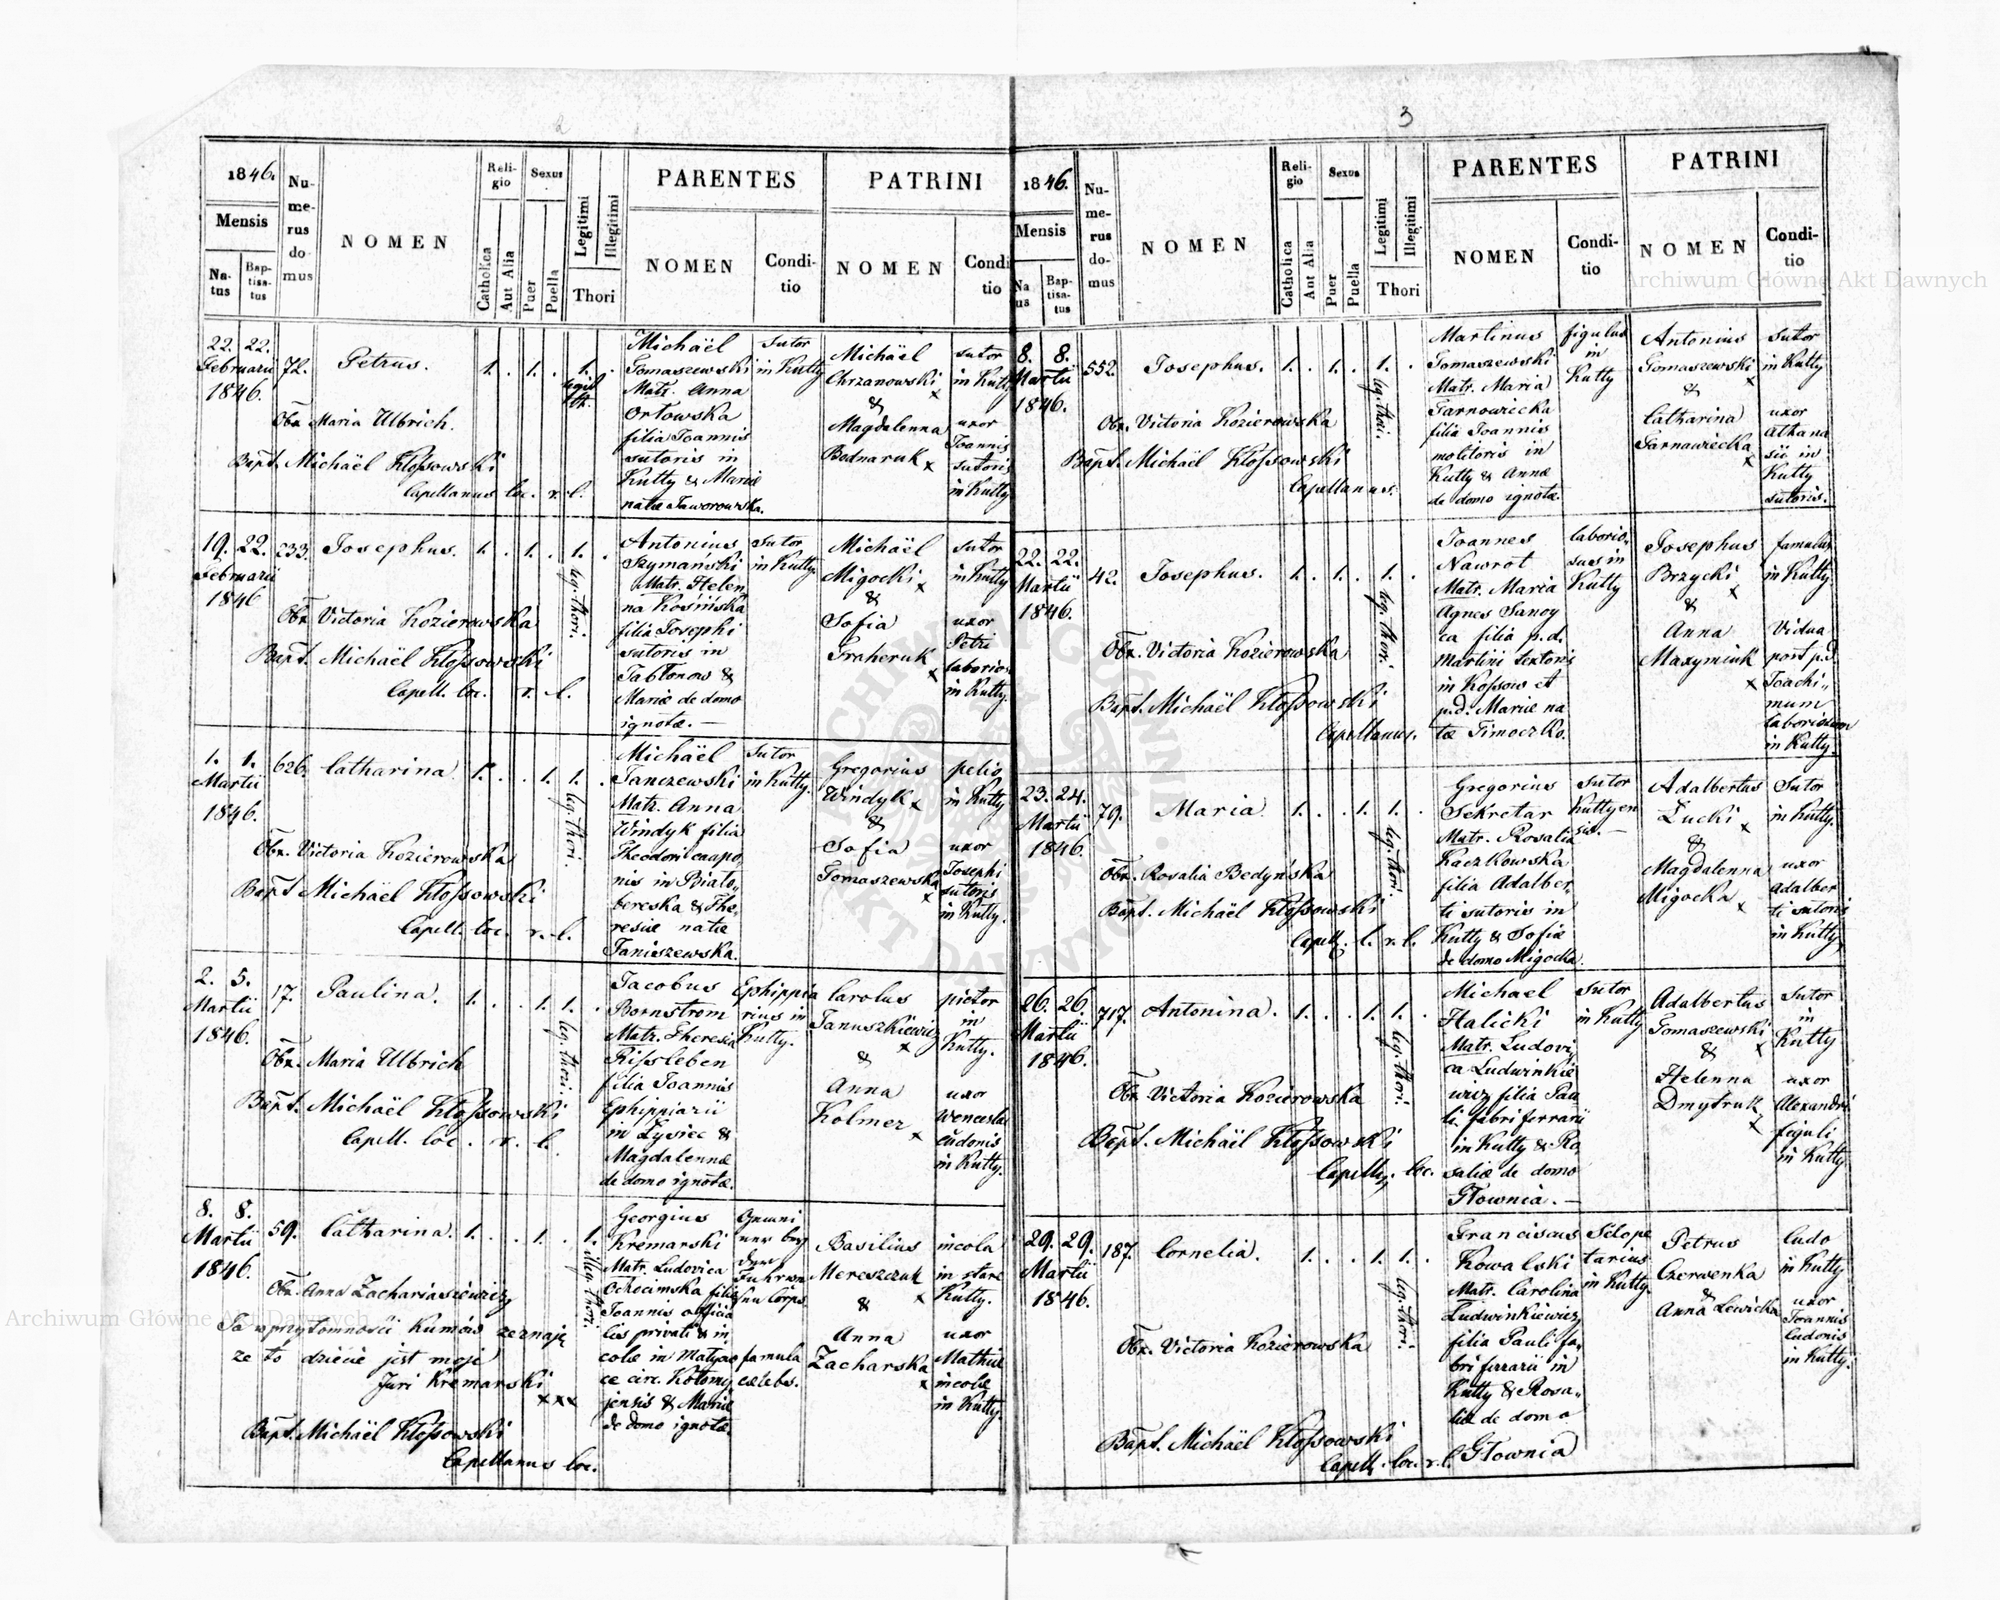 2
1846.
Mensis
Na-
tus
Bap-
tisa-
tus
Nu-
me-
rus
do-
mus
NOMEN
Reli-
gio
Catholica
Aut Alia
Sexus
Puer
Puella
Legitimi
Illegitimi
Thori
PARENTES
NOMEN
Condi-
tio
PATRINI
NOMEN
Condi
tio
22. 22.
Februarii
1846.
72.
Petrus.
1. 1. 1.
legit
th.
Obx. Maria Ulbrich.
Bapt. Michaël Kłossowski
Capellanus loc. r. l.
Michaël
Tomaszewski
Matr. Anna
Orłowska
filia Joannis
sutoris in
Kutty & Mariæ
natæ Jaworowska.
Sutor
in Kutty
Michaël
Chrzanowski
x
&
Magdalenna
Bodnaruk x
sutor
in Kutty
uxor
Joannis
sutoris
in Kutty
19. 22.
Februarii
1846
233.
Josephus.
1. . 1. 1. .
leg. thori.
Obx. Victoria Kozierowska
Bapt. Michaël Kłossowski
Capell. loc. r. l.
Antonius
Szymański
Matr. Helen
na Kosińska
filia Josephi
sutoris in
Jabłonow &
Mariæ de domo
ignotæ. —
Sutor
in Kutty
Michaël
Migocki x
&
Sofia
x
sutor
in Kutty
uxor
Petri
laborio
in Kutty.
1. 1.
Martii
1846.
626.
Catharina.
1. . . 1. 1. .
leg. thori.
Obx. Victoria Kozierowska
Bapt Michaël Kłossowski
Capell. loc. r. l.
Michaël
Janczewski
Matr. Anna
Windyk filia
Theodori caapo
nis in Biało,,
bereska & The,
resiæ natæ
Janiszewska.
Sutor
in Kutty.
Gregorius
Windyk x
&
Sofia
Tomaszewska
x
pelio
in Kutty
uxor
Josephi
sutoris
in Kutty.
2. 5.
Martii
1846.
17.
Paulina.
1. . . 1. 1. .
leg. thori.
Obx. Maria Ulbrich
Bapt. Michaël Kłossowski
Capell. loc. r. l.
Jacobus
Bornstrom
Matr. Theresia
Rissleben
filia Joannis
Ephippiarii
in Łysiec &
Magdalennæ
de domo ignotæ.
Ephippia
rius in
Kutty.
Carolus
Januszkiewicz
x
&
Anna
Kolmer x
pictor
in
Kutty.
uxor
Wenceslai
ludonis
in Kutty.
8. 8.
Martii
1846.
59.
Catharina.
1. . . 1. . 1.
illeg. thori.
Obx. Anna Zachariasiewicz
Ja w przytomności Kumów zeznaję
ze to dziecie jest moje
Juri Kremarski
xxx
Bapt. Michaël Kłossowski
Capellanus loc.
Georgius
Kremarski
Matr. Ludovica
Ochocimska filia
Joannis officia
lis privati & in
colæ in Matyjow
ce circ. Kołomy
jensis & Mariæ
de domo ignotæ.
Gemei
ner bey
dem
Fuhrwe
sen Corps.
famula
cælebs.
Basilius
Mereszczuk
x
&
Anna
Zacharska
x
incola
in stare
Kutty.
uxor
Mathiæ
incolæ
in Kutty.
3
1846.
Mensis
Na
us
Bap-
tisa-
tus
Nu-
me-
rus
do-
mus
NOMEN
Reli-
gio
Catholica
Aut Alia
Sexus
Puer
Puella
Legitimi
Illegitimi
Thori
PARENTES
NOMEN
Condi-
tio
PATRINI
NOMEN
Condi-
tio
8. 8.
Martii
1846.
552.
Josephus.
1. . 1. . 1. .
leg. thori.
Obx. Victoria Kozierowska
Bapt. Michaël Kłossowski
Capellanus.
Martinus
Tomaszewski
Matr. Maria
Tarnowiecka
filia Joannis
molitoris in
Kutty & Annæ
de domo ignotæ
figulus
in
Kutty
Antonius
Tomaszewski
x
&
Catharina
Tarnawiecka
x
sutor
in Kutty
uxor
Athana
sii in
Kutty
sutoris.
22. 22.
Martii
1846.
42.
Josephus.
1. . 1. . 1. .
leg. thori.
Obx. Victoria Kozierowska
Bapt. Michaël Kłossowski
Capellanus.
Joannes
Nawrot
Matr. Maria
Agnes Sanoy
ca filia p.d.
Martini textoris
in Kossow et
p.d. Mariæ na
tæ Timoczko.
laborio,
sus in
Kutty
Josephus
Brzycki
x
&
Anna
Maxymiuk
x
famulus
in Kutty.
Vidua
post p.d.
Joachi,,
mum
laboriosum
in Kutty.
23. 24.
Martii
1846.
79.
Maria.
1. . . 1. 1. .
leg. thori.
Obx. Rosalia Bedyńska
Bapt. Michaël Kłossowski
Capell. l. r. l.
Gregorius
Sekretar
Matr. Rosalia
Kaczkowska
filia Adalber,
ti sutoris in
Kutty & Sofiæ
de domo Migocka.
Sutor
Kuttyen
sis. —
Adalbertus
Łucki x
&
Magdalenna
Migocka x
Sutor
in Kutty.
uxor
Adalber
ti sutoris
in Kutty
26. 26.
Martii
1846.
717.
Antonina.
1. . . 1. 1. .
leg. thori.
Obx Victoria Kozierowska
Bapt. Michaël Kłossowski
Capell. loc.
Michael
Halicki
Matr. Ludovi,
ca Ludwinkie
wicz filia Pau
li fabri ferrarii
in Kutty & Ro
saliæ de domo
Głownia. —
Sutor
in Kutty
Adalbertus
Tomaszewski
x
&
Helenna
Dmytruk
x
Sutor
in
Kutty
uxor
Alexandri
figuli
in Kutty
29. 29.
Martii
1846.
187.
Cornelia.
1. . . 1. 1. .
leg. thori.
Obx. Victoria Kozierowska
Bapt. Michaël Kłossowski
Capell. loc. r. l.
Franciscus
Kowalski
Matr. Carolina
Ludwinkiewicz
filia Pauli fa,
bri ferrarii in
Kutty & Rosa,,
liæ de domo
Głownia
Sclope
tarius
in Kutty.
Petrus
Czerwenka
&
Anna Lewicka
ludo
in Kutty
uxor
Joannis
ludonis
in Kutty.
Archiwum Główne Akt Dawnych
Archiwum Główne Akt Dawnych
ARCHIWUM GŁÓWNE AKT DAWNYCH